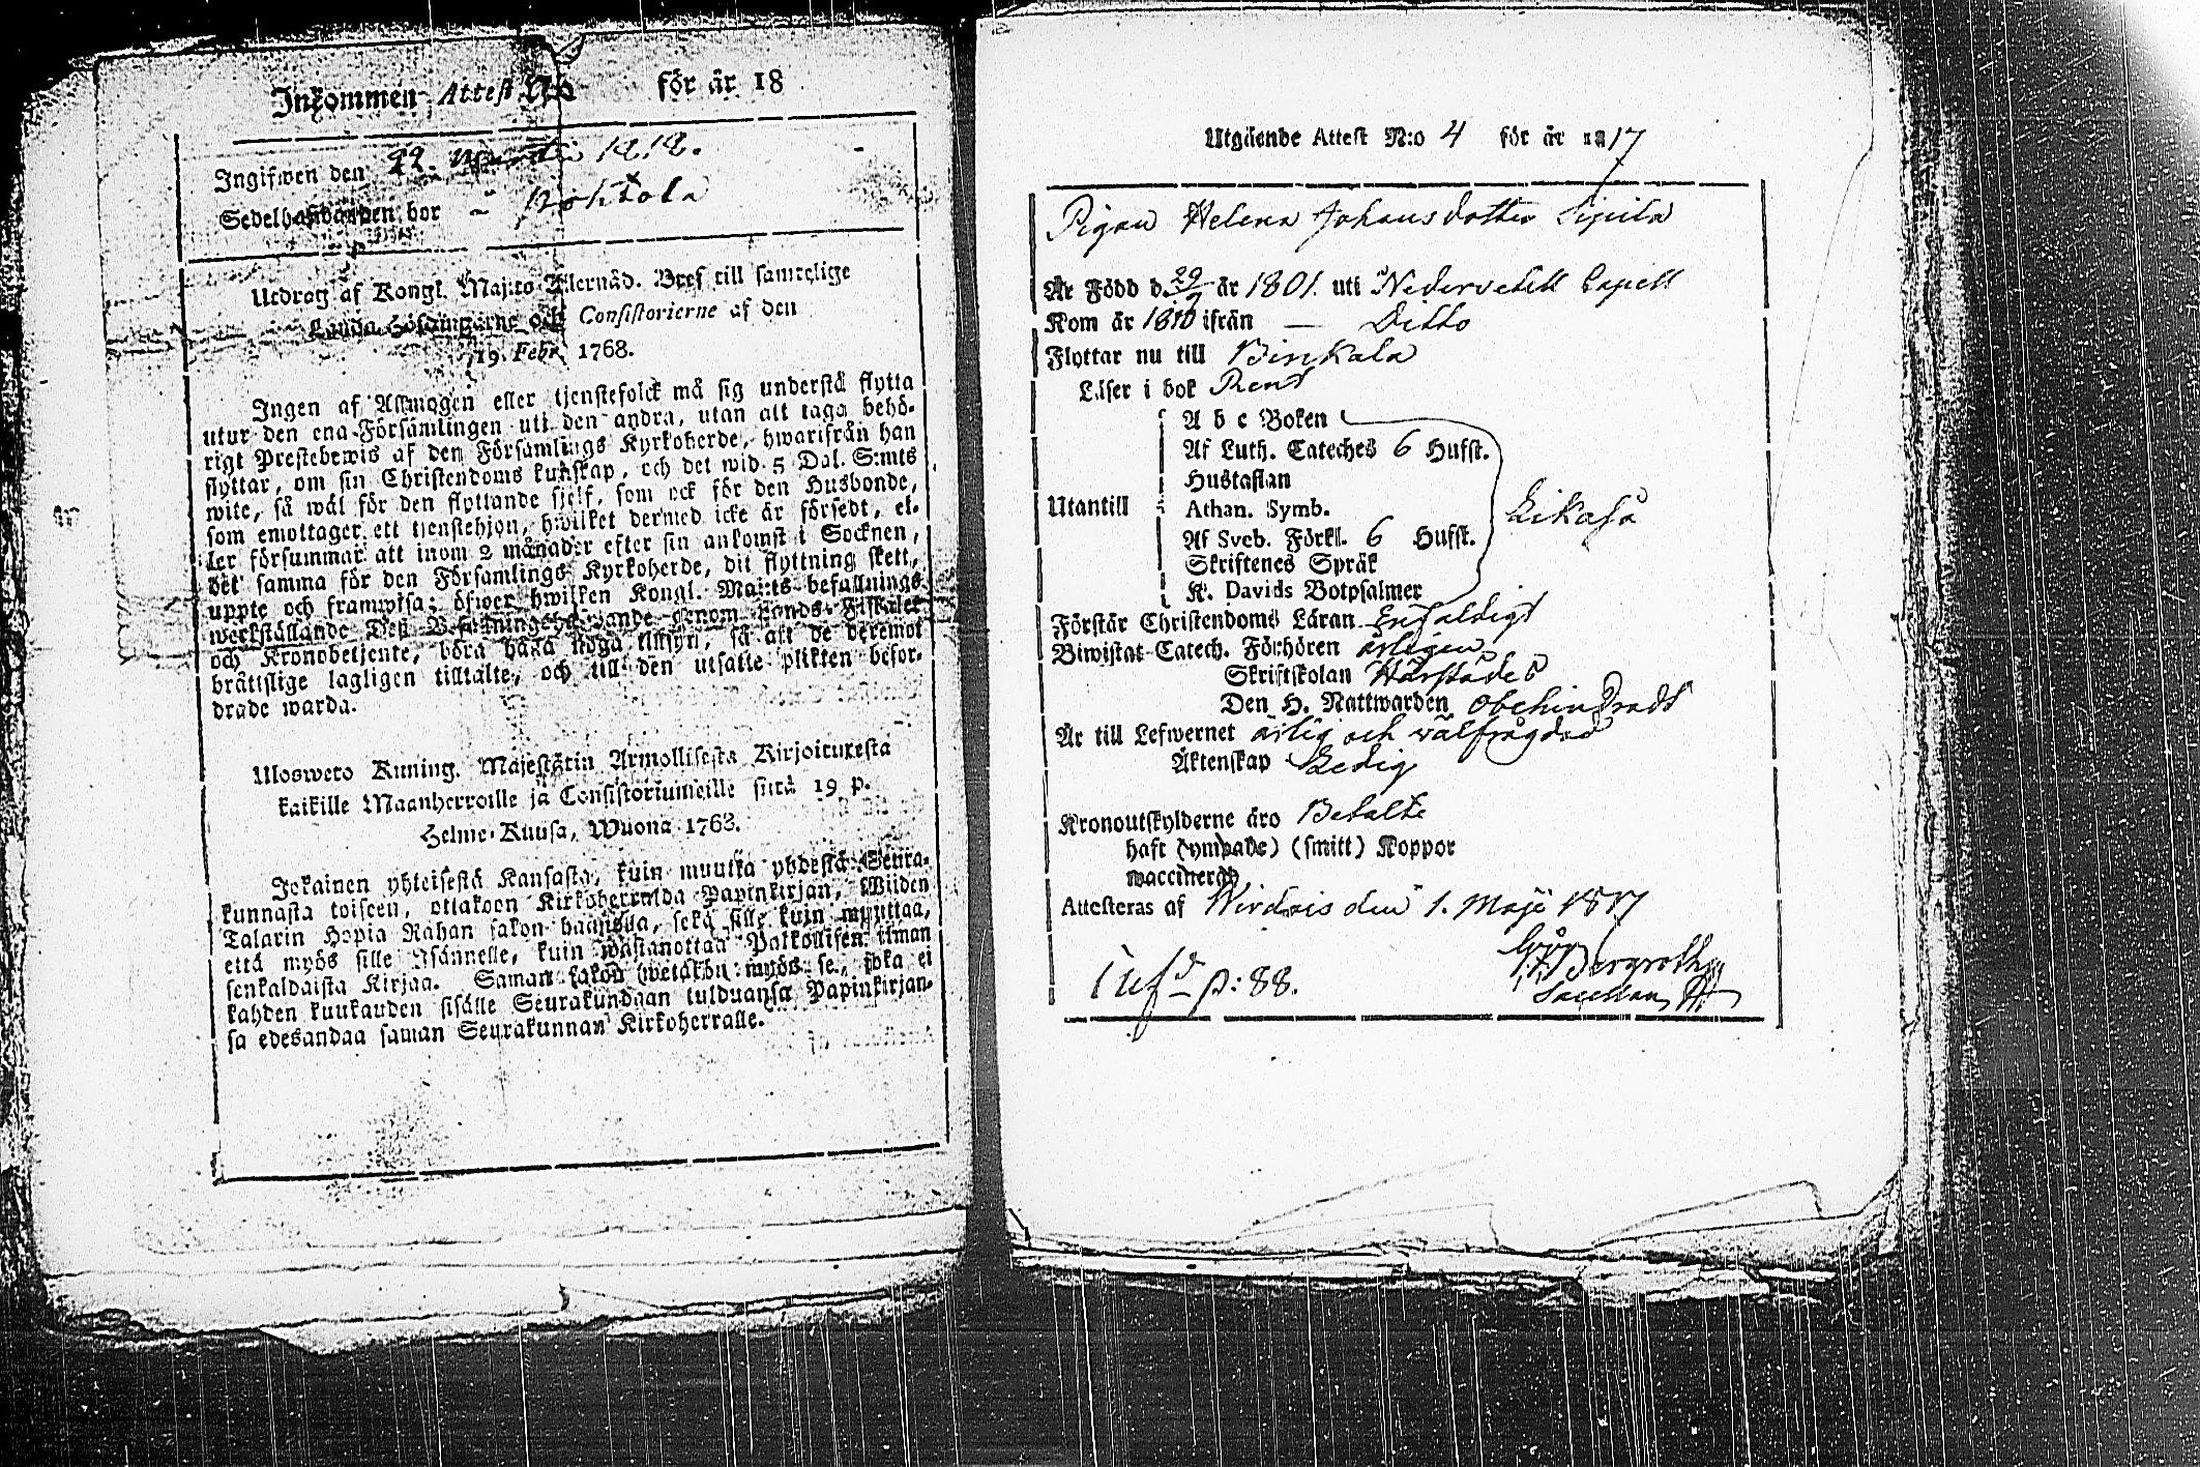 Inkommen Attest No för år 18
Ingifwen den 22. 1818.
Sedelhafwaren bor -
Utdrag af Kongl. Maj:ts Allernåd. Bref till samtelige
Landshöfdingarne och Consistorierne af den
19. Febr. 1768.
Ingen af Allmogen eller tjenstefolck må sig understå flytta
utur den ena Församlingen uti den andra, utan att taga behö-
rigt Prestebewis af den Församlings Kyrkoherde, hwarifrån han
flyttar, om sin Christendoms kunskap, och det wid 5 Dal. S:mts
wite, så wäl för den flyttande sjelf, som ock för den Husbonde,
som emottager ett tjenstehjon, hwilket dermed icke är försedt, el-
ler försummar att inom 2 månader efter sin ankomst i Socknen,
det samma för den Församlings Kyrkoherde, dit flyttning skett,
uppte och framwisa; öfwer hwilken Kongl. Maj:ts befallnings
werkställande Dess Befallningshafwande genom Lands-Fiskaler
och Kronobetjente, böra hafwa noga tillsyn, så att de deremot
bråttslige lagligen tilltalte, och till den utsatte plikten befor-
drade warda.
Ulosweto Kuning. Majestätin Armollisesta Kirjoituxesta
kaikille Maanherroille ja Consistoriumeille siitä 19 p.
Helme-Kuusa, Wuona 1768.
Jokainen yhteisestä Kansasta, kuin muutta yhdestä Seura-
kunnasta toiseen, ottakoon Kirkoherralda Papinkirjan, Wiiden
Talarin Hopia Rahan sakon haastolla, sekä sille kuin muuttaa,
että myös sille Isännelle, kuin wastanottaa Palkollisen ilman
senkaldaista Kirjaa. Saman sakon wetäkön myös se, joka ei
kahden kuukauden sisälle Seurakundaan tulduansa Papinkirjan-
sa edesandaa saman Seurakunnan Kirkoherralle.
Utgående Attest N:o 4 för år 1817
Pigan Helena Johansdotter Sipila
Är Född d. 29/9 år 1801. uti Nedervetill Capell
Kom år 1810 ifrån — Ditto
Flyttar nu till Birkala
Läser i bok Rent
A b c Boken
Af Luth. Cateches 6 Hufst.
Hustaflan
Utantill Athan. Symb. Likaså
Af Sveb. Förkl. 6 Hufst.
Skriftenes Språk
K. Davids Botpsalmer
Förstår Christendoms Läran Enfaldigt
Biwistat Catech. Förhören årligen
Skriftskolan Härstädes
Den H. Nattwarden obehindradt
Är till Lefwernet ärlig och välfrägdad
Äktenskap Ledig
Kronoutskylderne äro Betalte
haft (ympade) (smitt) Koppor
waccinerad
Attesteras af Wirdois den 1. Maji 1817
Inf. p: 88.
Bergroth
Sacellan